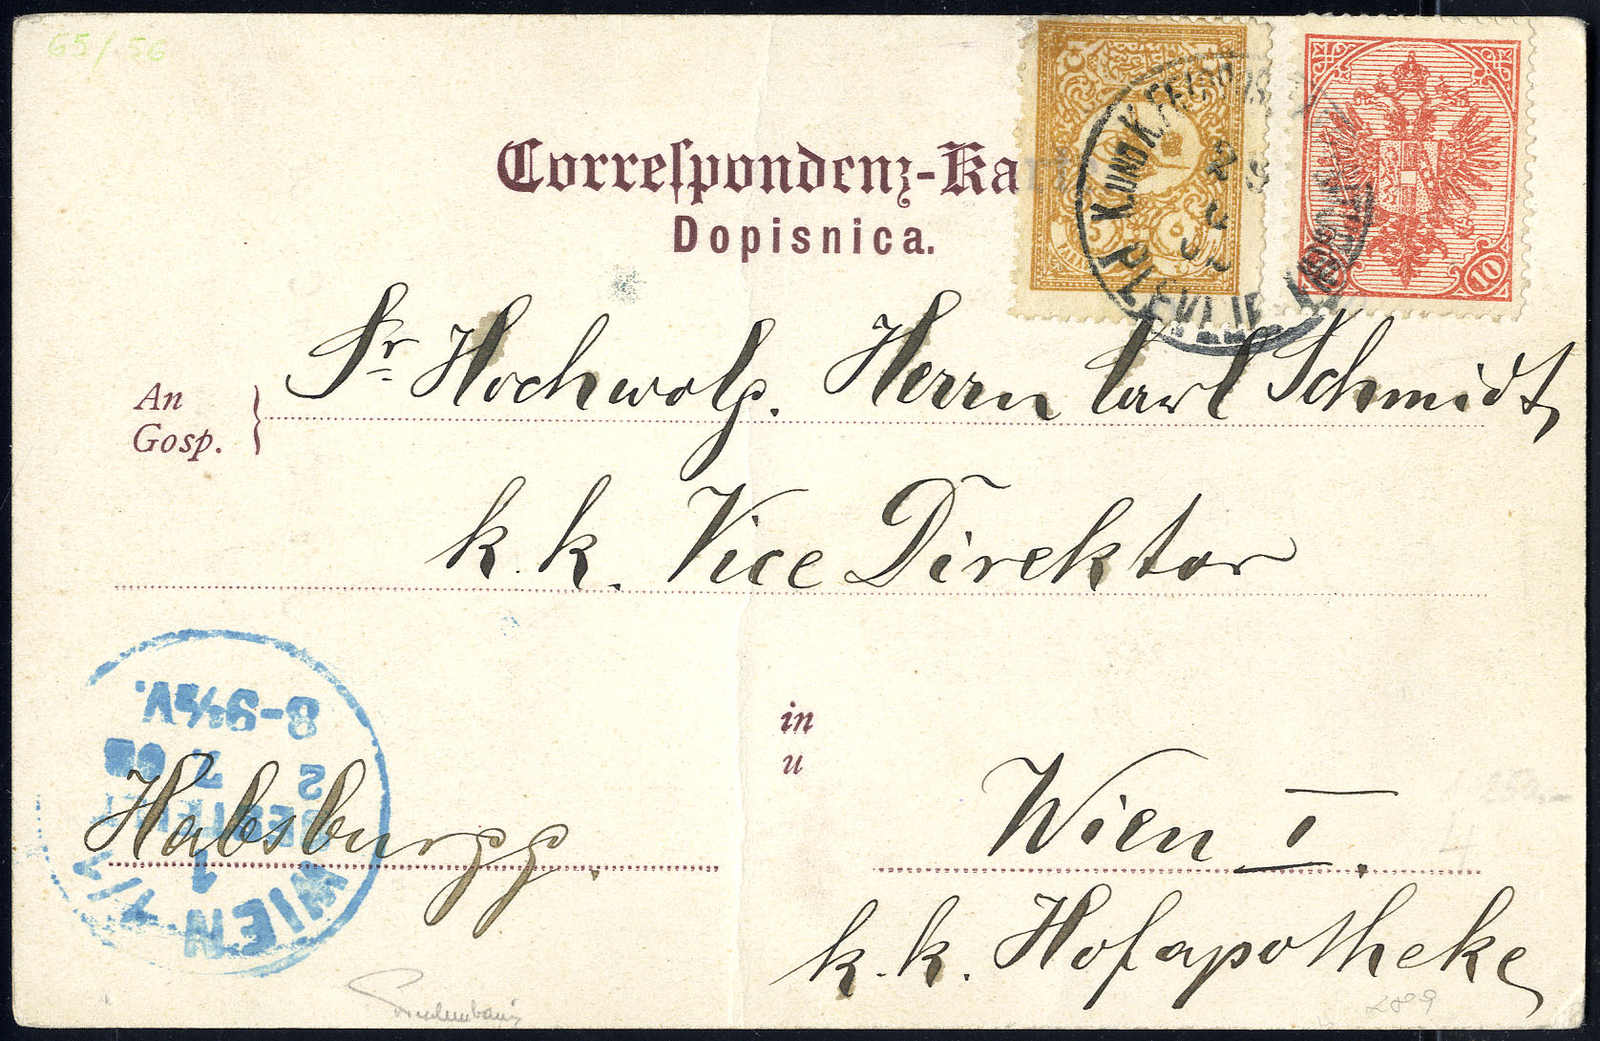 65/56
Correſpondenz-Kar
Dopisnica.
K. UND K. FELDPOS
PLEVLJE
10
An
Gosp.
Sr Hochwolg. Herrn Carl Schmidt
k. k. Vice Direktor
in
u
Wien I.
Habsburgg.
k. k. Hofapotheke
WIEN 1/1
1
BESTELLT
2 7 02
8-9½V.